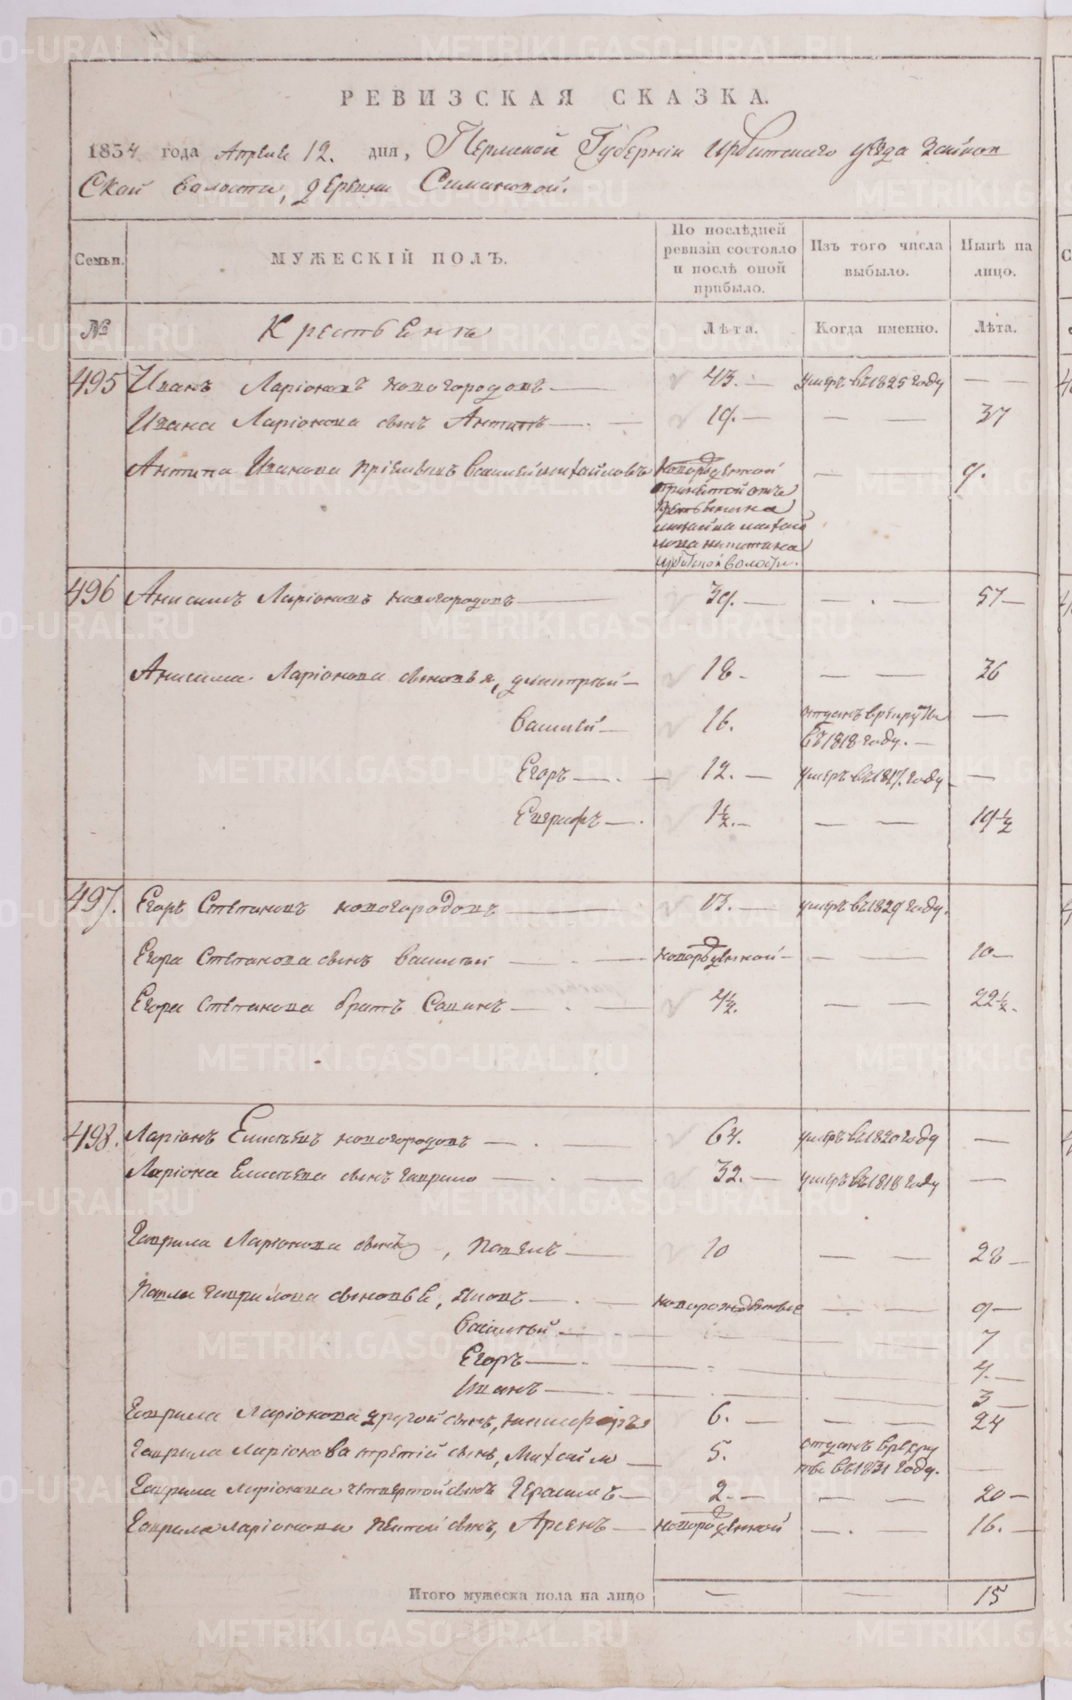 РЕВИЗСКАЯ СКАЗКА.
1834 года Апреля 12. дня, Пермской Губернии Ирбитского уезда Зайков
ской волости, деревни Симановой.
Семьи. МУЖЕСКІЙ ПОЛЪ. По послѣдней ревизіи состояло и послѣ оной прибыло. Изъ того числа выбыло. Нынѣ на лицо.
№ Крестьене Лѣта. Когда именно. Лѣта.
495 Иванъ Ларіоновъ Новогородовъ 43. умеръ въ 1825 году
Ивана Ларіонова сынъ Антипъ 19. 37
Антипа Иванова пріемышъ Василей Михайловъ Новорожденной принятой отъ крестьенина Михайла Михайлова Никитина Ирбитской волости. 9.
496 Анисимъ Ларіоновъ Новогородовъ 39. 57
Анисима Ларіонова сыновья, Дмитрей 18 36
Василей 16. отданъ в рекруты въ 1818 году.
Егоръ 12. умеръ въ 1827 году
Евграфъ 1½. 19½
497. Егоръ Степановъ Новогородовъ 13. умеръ въ 1829 году.
Егора Степанова сынъ Василей Новорожденной 10
Егора Степанова братъ Савинъ 4½. 22½.
498. Ларіонъ Елисеевъ Новогородовъ 64. умеръ въ 1820 году
Ларіона Елисеева сынъ Гаврило 32. умеръ въ 1818 году
Гаврила Ларіонова сынъ, Павелъ 10 28
Павла Гаврилова сыновье, Яковъ новорожденные 9
Василей 7
Егоръ 4.
Иванъ 3
Гаврила Ларіонова другой сынъ, Никифоръ 6. 24
Гаврила Ларіонова третій сынъ, Михайло 5. отданъ в рекруты въ 1831 году.
Гаврила Ларіонова четвертой сынъ Герасимъ 2. 20
Гаврила Ларіонова пятой сынъ, Арсенъ Новорожденной 16.
Итого мужеска пола на лицо 15
METRIKI.GASO-URAL.RU